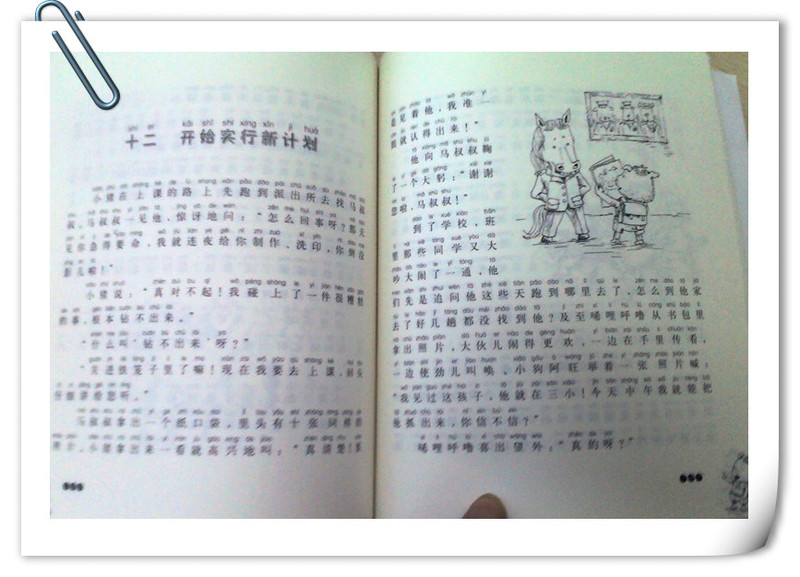 十二 开始实行新计划
小猪在上课的路上先跑到派出所去找马叔
叔，马叔叔一见他，惊讶地问：“怎么回事呀？那天
见你急得要命，我就连夜给你制作、洗印，你到没
影儿啦！”
小猪说：“真对不起！我碰上了一件很糟糕
的事，根本钻不出来。”
“什么叫‘钻不出来’呀？”
“关进铁笼子里了嘛！现在我要去上课，回头
仔细讲给您听。”
马叔叔拿出一个纸口袋，里头有十张同样的
照片，小猪拿出来一看就高兴地叫：“真清楚！我
要是见着他，我准一
眼就认得出来！”
他向马叔叔鞠
了一个大躬：“谢谢
您啦，马叔叔！”
到了学校，班
里那些同学又大
吵大闹了一通，他
们先是追问他这些天跑到哪里去了，怎么到他家
去了好几趟都没找到他？及至唏哩呼噜从书包里
拿出照片，大伙儿闹得更欢，一边在手里传看，
一边使劲儿叫唤，小狗阿旺举着一张照片喊：
“我见过这孩子，他就在三小！今天中午我就能把
他抓出来，你信不信？”
唏哩呼噜喜出望外：“真的呀？”